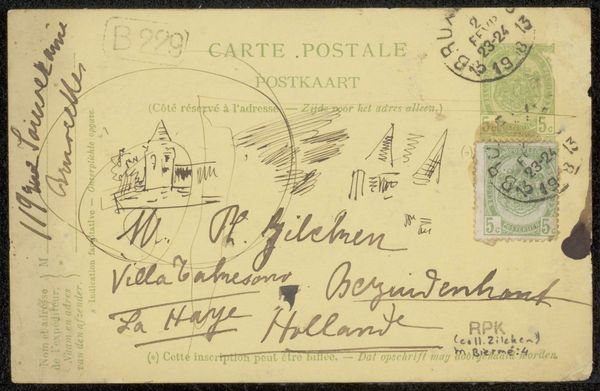 B 229
CARTE POSTALE
POSTKAART
(Côté réservé à l'adresse. — Zijde voor het adres alleen.)
BRUX
2
FEVR
23-24
1913
5c 5c
BRU
23-24
1913
5c 5c
119 rue Souveraine
Bruxelles
Nom et adresse
de l'expéditeur.
Naam en adres
van den afzender.
M
* Indication facultative — Onverplichte opgave.
M. Ph. Zilcken
Villa
Bezuidenhout
La Haye
Hollande
RPK
(coll. Zilcken)
M. Biermé: 4
(*) Cette inscription peut être biffée. — Dat opschrift mag doorgehaald worden.